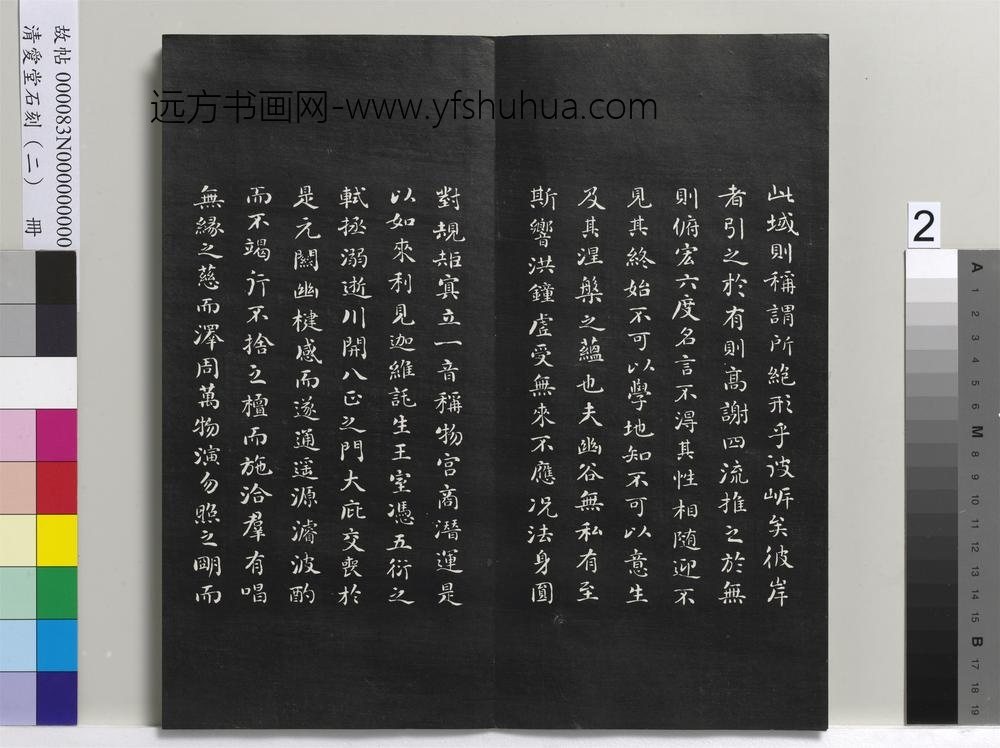 故帖 000083N000000000
清愛堂石刻（二） 冊
远方书画网-www.yfshuhua.com
此域則稱謂所絶形乎彼岸矣彼岸
者引之於有則高謝四流推之於無
則俯宏六度名言不得其性相隨迎不
見其終始不可以學地知不可以意生
及其涅槃之蘊也夫幽谷無私有至
斯響洪鐘虛受無來不應况法身圓
對規矩冥立一音稱物宮商潛運是
以如來利見迦維託生王室憑五衍之
軾拯溺逝川開八正之門大庇交喪於
是元關幽楗感而遂通遥源濬波酌
而不竭行不捨之檀而施洽羣有唱
無緣之慈而澤周萬物演勿照之明而
2
A 1 2 3 4 5 6 M 8 9 10 11 12 13 14 15 B 17 18 19